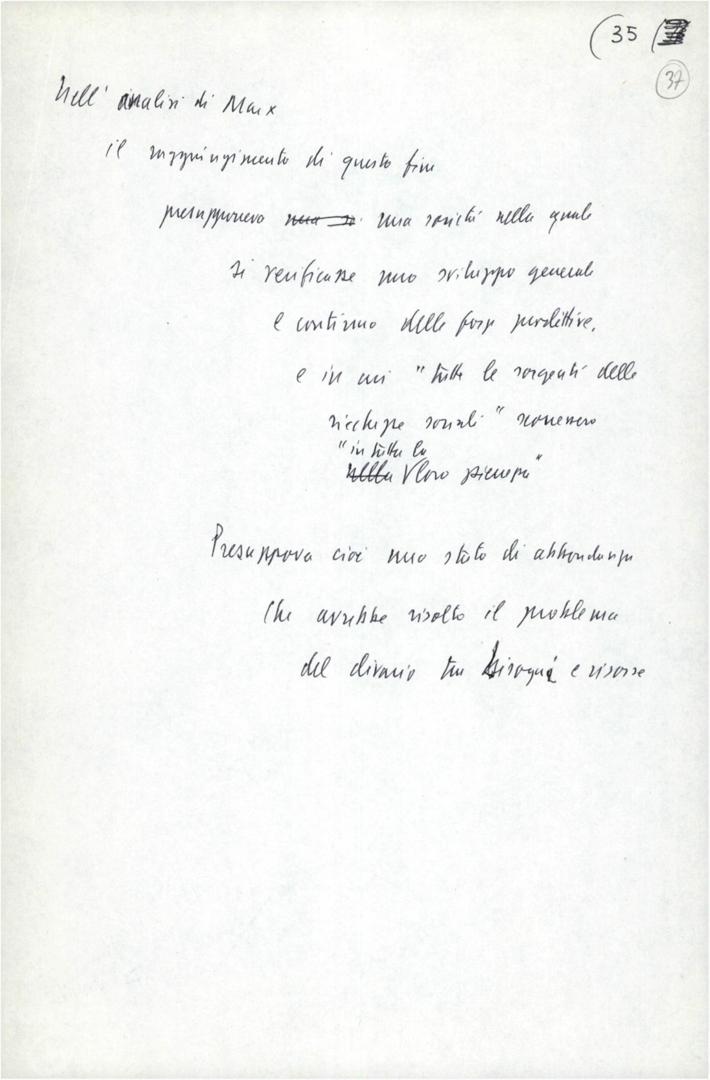 (35
37
Nell'analisi di Marx
il raggiungimento di questo fine
presupponeva una società nella quale
si verificasse uno sviluppo generale
e continuo delle forze produttive,
e in cui "tutte le sorgenti delle
ricchezze sociali" scorressero
"in tutta la
nella loro pienezza"
Presuppova cioè uno stato di abbondanza
che avrebbe risolto il problema
del divario tra bisogni e risorse